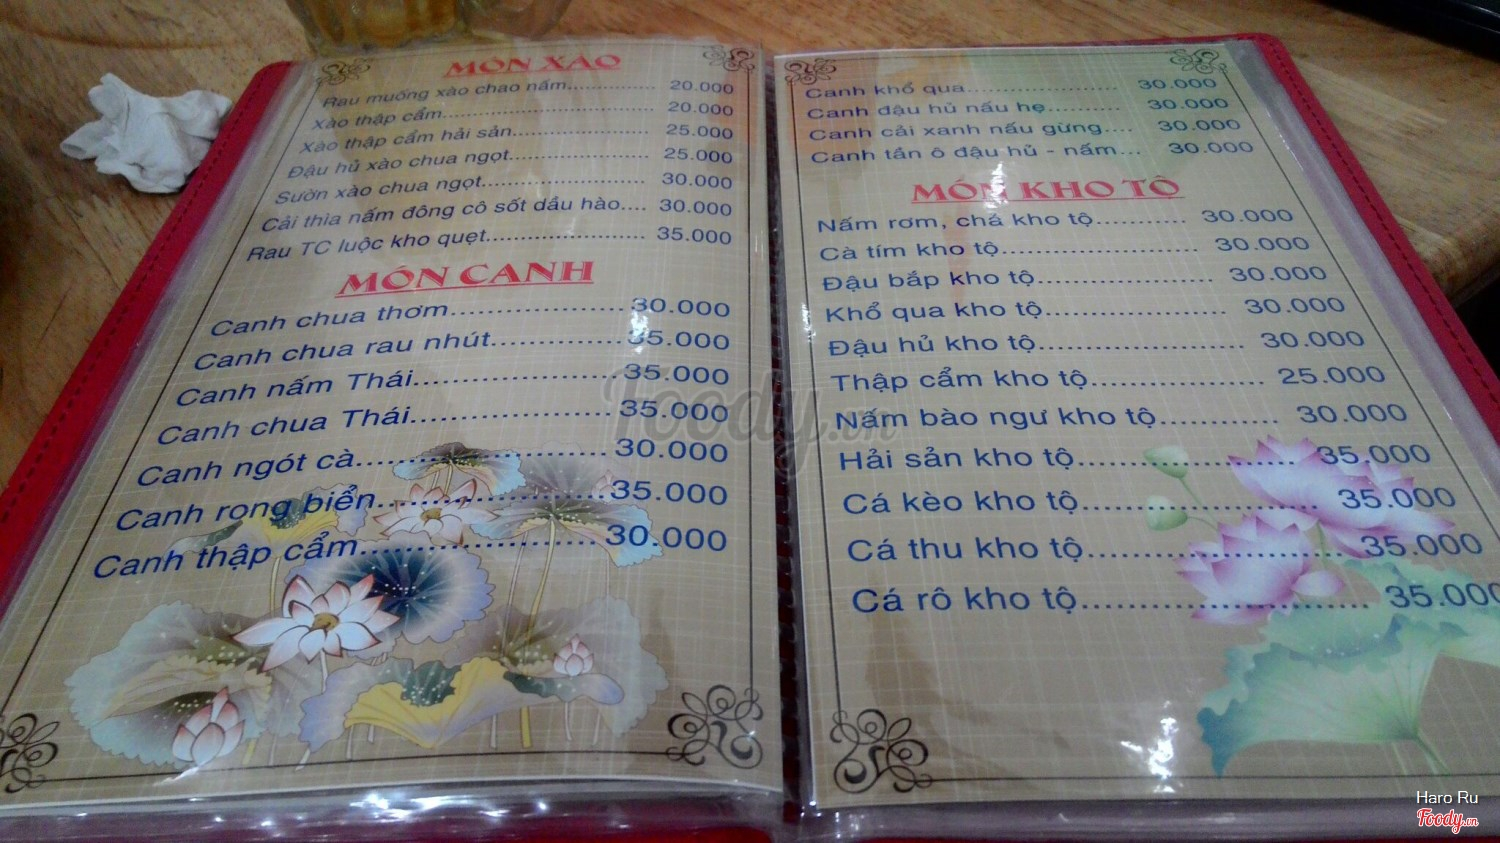 MÓN XÀO
Rau muống xào chao nấm.............. 20.000
Xào thập cẩm................................... 20.000
Xào thập cẩm hải sản...................... 25.000
Đậu hủ xào chua ngọt...................... 25.000
Sườn xào chua ngọt......................... 30.000
Cải thìa nấm đông cô sốt dầu hào.... 30.000
Rau TC luộc kho quẹt....................... 35.000
MÓN CANH
Canh chua thơm.......................30.000
Canh chua rau nhút.................35.000
Canh nấm Thái..........................35.000
Canh chua Thái.........................35.000
Canh ngót cà.............................30.000
Canh rong biển.........................35.000
Canh thập cẩm.........................30.000
Canh khổ qua.................... 30.000
Canh đậu hủ nấu hẹ........... 30.000
Canh cải xanh nấu gừng.... 30.000
Canh tần ô đậu hủ - nấm... 30.000
MÓN KHO TỘ
Nấm rơm, chả kho tộ........... 30.000
Cà tím kho tộ........................ 30.000
Đậu bắp kho tộ..................... 30.000
Khổ qua kho tộ..................... 30.000
Đậu hủ kho tộ....................... 30.000
Thập cẩm kho tộ................... 25.000
Nấm bào ngư kho tộ............. 30.000
Hải sản kho tộ....................... 35.000
Cá kèo kho tộ........................ 35.000
Cá thu kho tộ......................... 35.000
Cá rô kho tộ........................... 35.000
Foody.vn
Haro Ru
Foody.vn